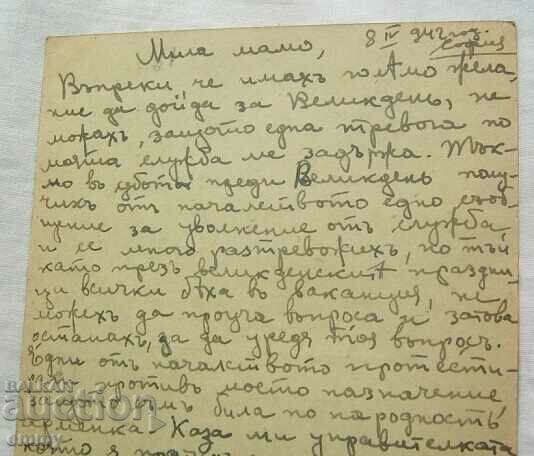 8 IV 942 год.
София
Мила мамо,
Въпреки, че имахъ голѣмо жела-
ние да дойда за Великдень, не
можахъ, защото една тревога по
моята служба ме задържа. Тък-
мо въ събота преди Великдень полу-
чихъ отъ началството едно съоб-
щение за уволнение отъ служба
и се много разтревожихъ, но тъй
като презъ великденскитѣ праздни-
ци всички бѣха въ ваканция, не
можехъ да проуча въпроса и затова
останахъ, за да уредя тоя въпросъ.
Едни отъ началството протести-
противъ моето назначение,
защото съмъ била по народность
арменка. Каза ми управителката
която я
BALKAN
Auction
dmppy